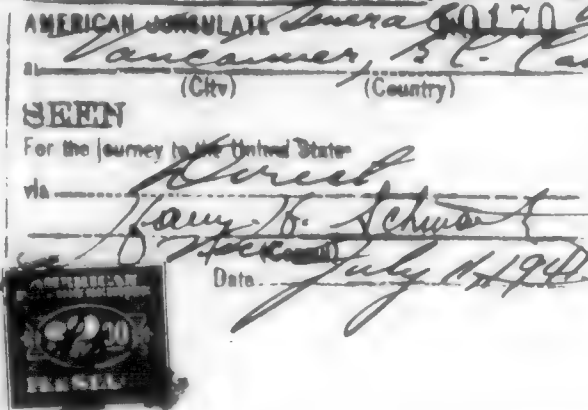 AMERICAN CONSULATE General
at Vancouver, B.C. Can
(City) (Country)
SEEN
For the journey to the United States
via Direct
Harry H. Schwart
(Vice Consul)
Date July 11, 1940
AMERICAN
2 00